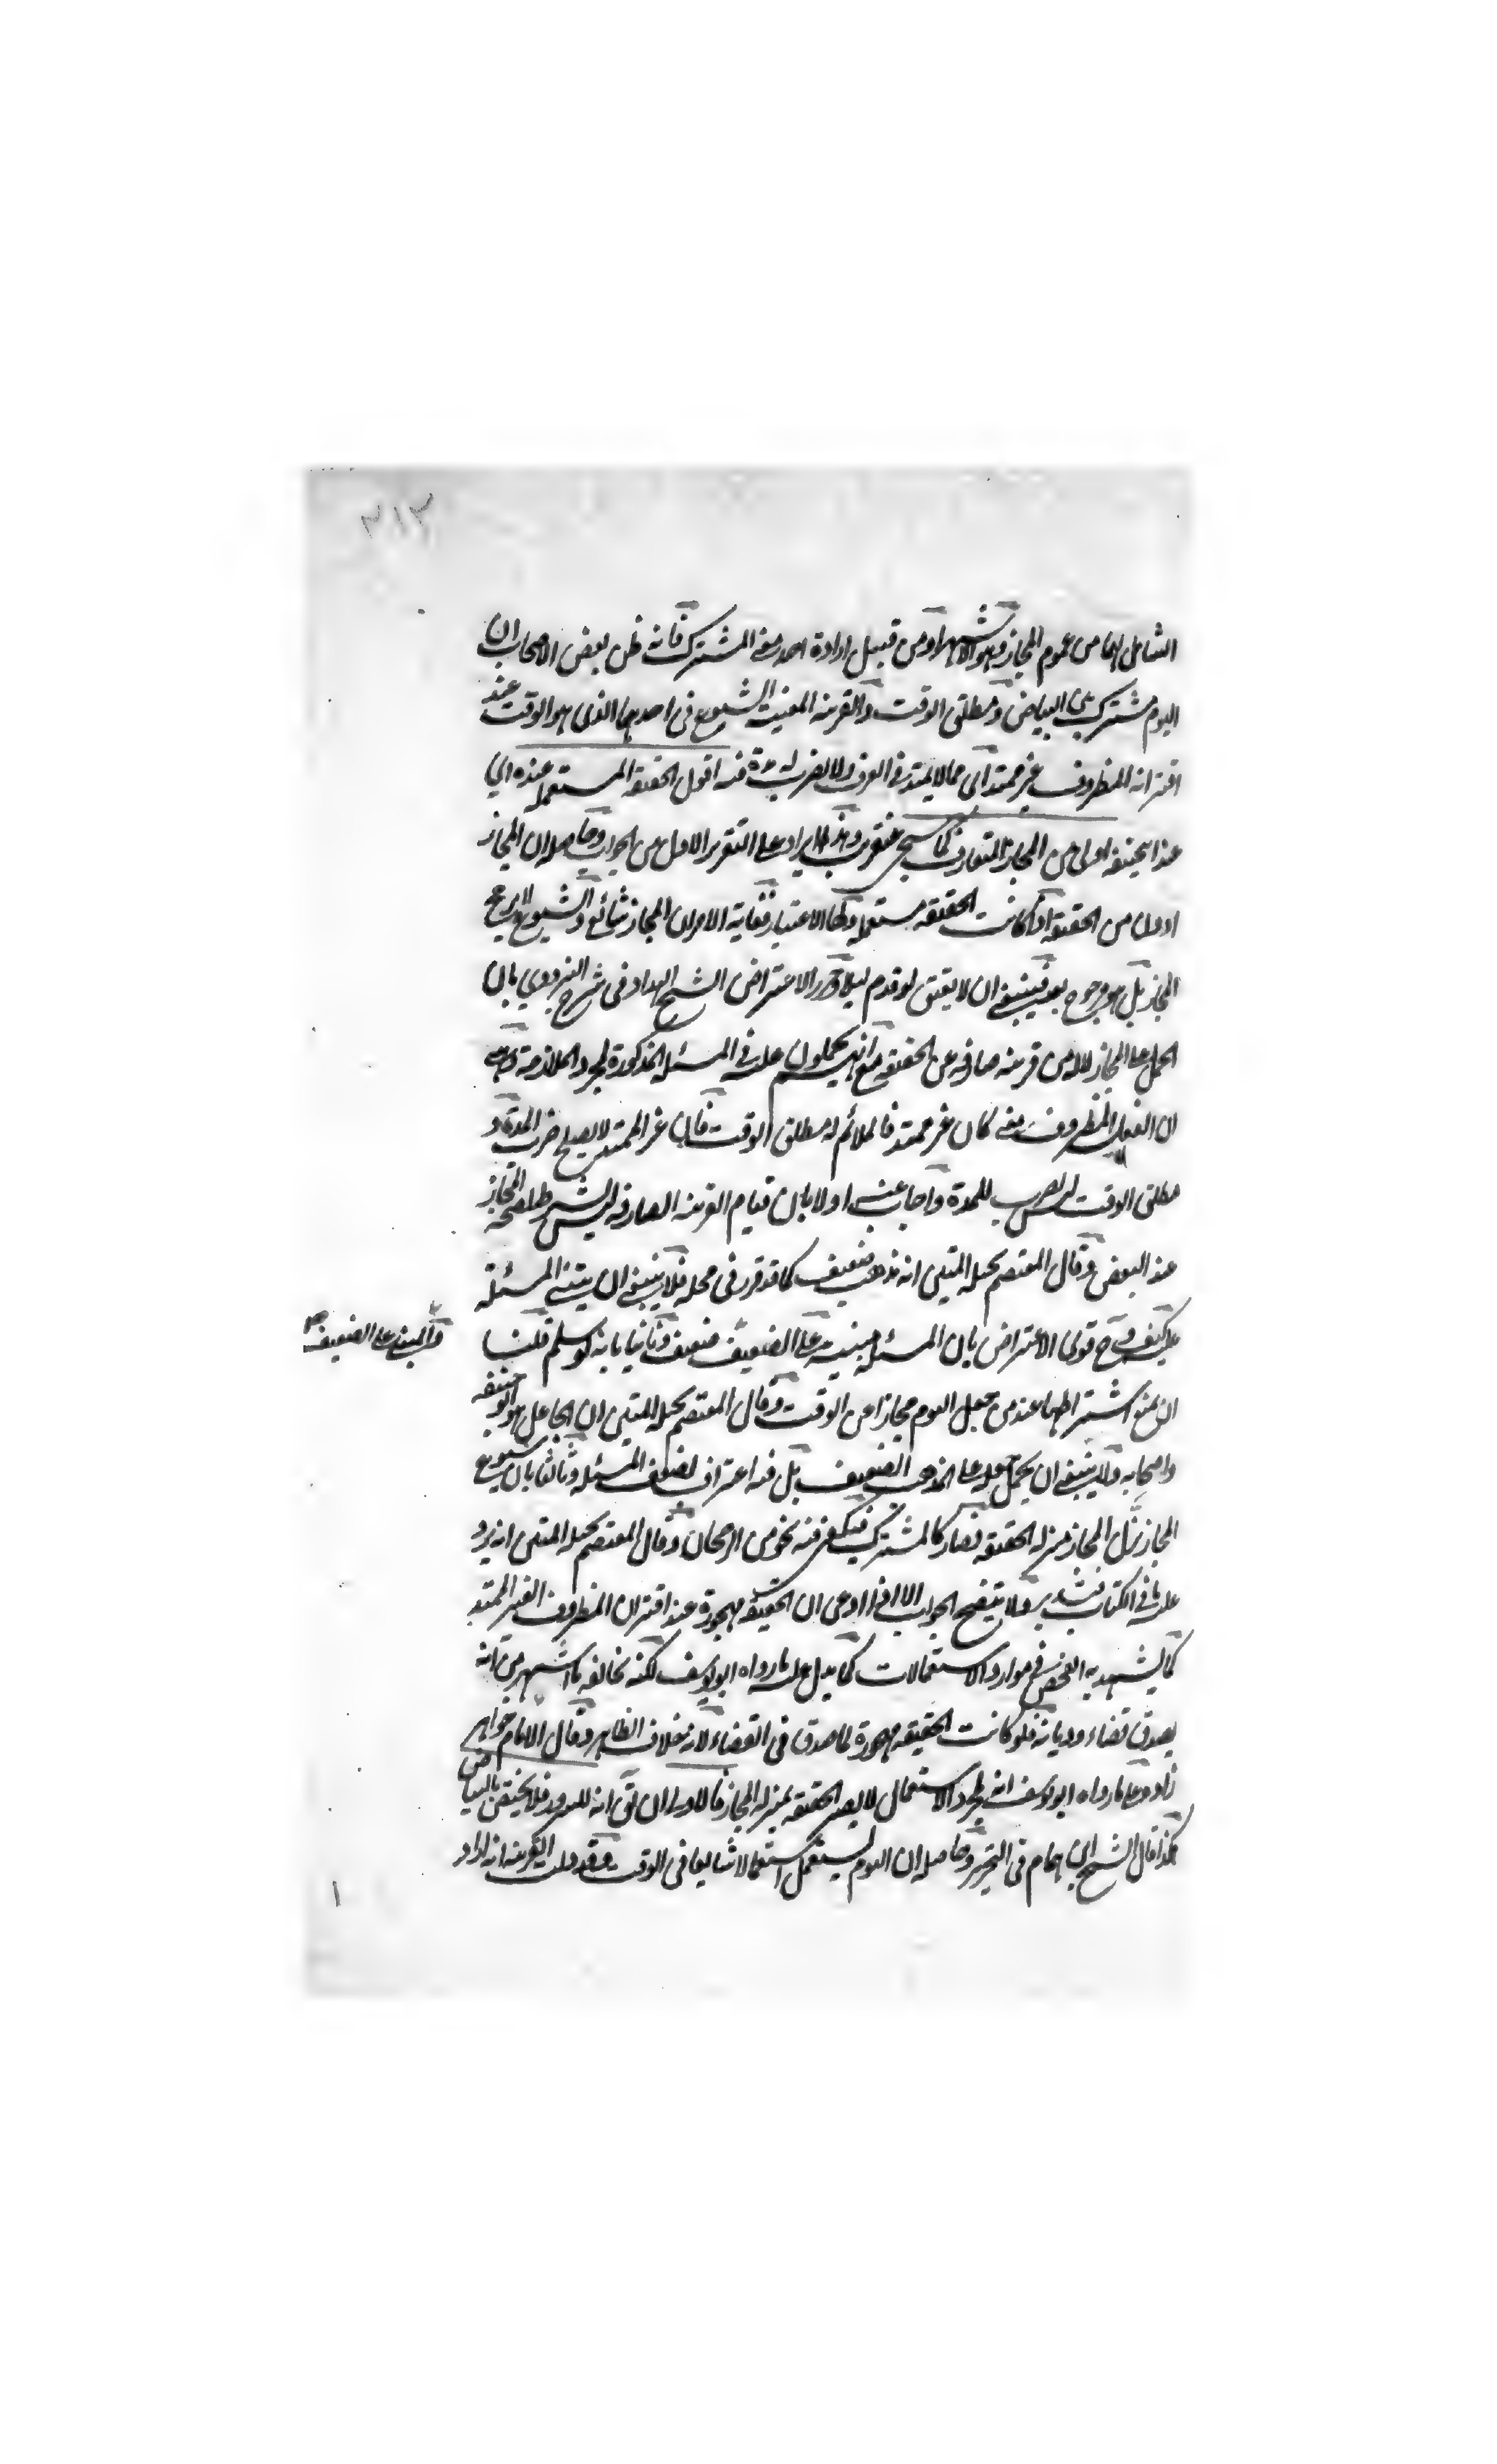 ٣١٣
الشامل لهما من عموم المجاز وهو الاشهر او من قبيل ارادة احد معنى المشترك فانه ظن بعض الاصحاب ان
اليوم مشترك بين البياض ومطلق الوقت والقرينة المعينة الشيوع فى احدهما الذى هو الوقت عند
اقترانه المظروف غير ممتد اى مما لا يمتد فى العرف ولا يضرب له مدة فيه اقول الحقيقة المستعملة عنده اى
عند ابيحنيفة اولى من المجاز المتعارف كما سيجئ عنقريب وهذا ايراد على التقرير الاول من الجواب وحاصله ان المجاز
اولى من الحقيقة اذا كانت الحقيقة مستعملة ولها الاعتبار فغاية الامر ان المجاز شائع والشيوع لا يرجح
المجاز بل هو مرجوح بعد فينبغى ان لا يعتق لو قدم ليلا وقرر الاعتراض الشيخ الهداد فى شرح البزدوي بان
الحمل على المجاز لا بد له من قرينة صارفة عن الحقيقة مع انهم يحملون عليه فى المسئلة المذكورة لمجرد الملازمة وهى
ان الفعل المظروف متى كان غير ممتد فالملائم له مطلق الوقت فان غير الممتد لا يصلح ضرب المدة و
مطلق الوقت ليس لضرب للمدة واجاب عنه اولا بان قيام القرينة الصارفة ليس شرطا لصحة المجاز
عند البعض وقال المعتصم بحبله المتين انه مذهب ضعيف كما قد قرر فى محله فلا ينبغى ان يبتنى المسئلة
عليه كيف وح قوى الاعتراض بان المسئلة مبنية على الضعيف ضعيف وثانيا بانه لو سلم قلنا
والمبنى على الضعيف صح
ان يمنع اشتراطها عند من جعل اليوم مجازا عن الوقت وقال المعتصم بحبله المتين ان الجاعل هو ابو حنيفة
واصحابه ولا ينبغى ان يحمل جعله على المذهب الضعيف بل فيه اعتراف لضعف المسئلة وثالثا بان شيوع
المجاز نزل المجاز منزلة الحقيقة فصار كالمشترك فيكفى فيه نحو من الرجحان وقال المعتصم بحبله المتين انه يرد
عليه ما فى الكتاب فتدبر ولا يتضح الجواب الا اذا ادعى ان الحقيقة مهجورة عند اقتران المظروف الغير الممتد
كما يشهد به الفحص فى موارد الاستعمالات كما يدل عليه ما رواه ابو يوسف لكنه يخالفه ما اشتهر من انه
يصدق قضاء وديانة فلو كانت الحقيقة مهجورة لما صدق فى القضاء لانه خلاف الظاهر وقال الامام خواهر
زاده على ما رواه ابو يوسف انه لمجرد الاستعمال لا يصير الحقيقة بمنزلة المجاز فالاولى ان يق انه للسرور فلا يختص بالبياض
كذا قال الشيخ ابن همام فى التحرير وحاصله ان اليوم يستعمل استعمالا شايعا فى الوقت وقد دلت القرينة انه اراد